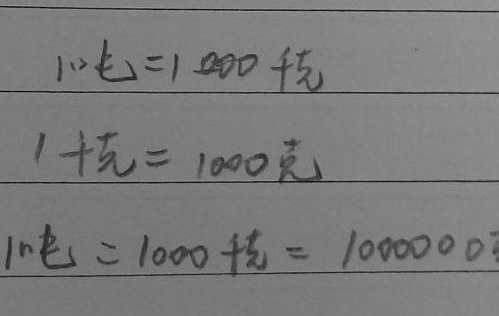 1吨=1000千克
1千克=1000克
1吨=1000千克=1000000克